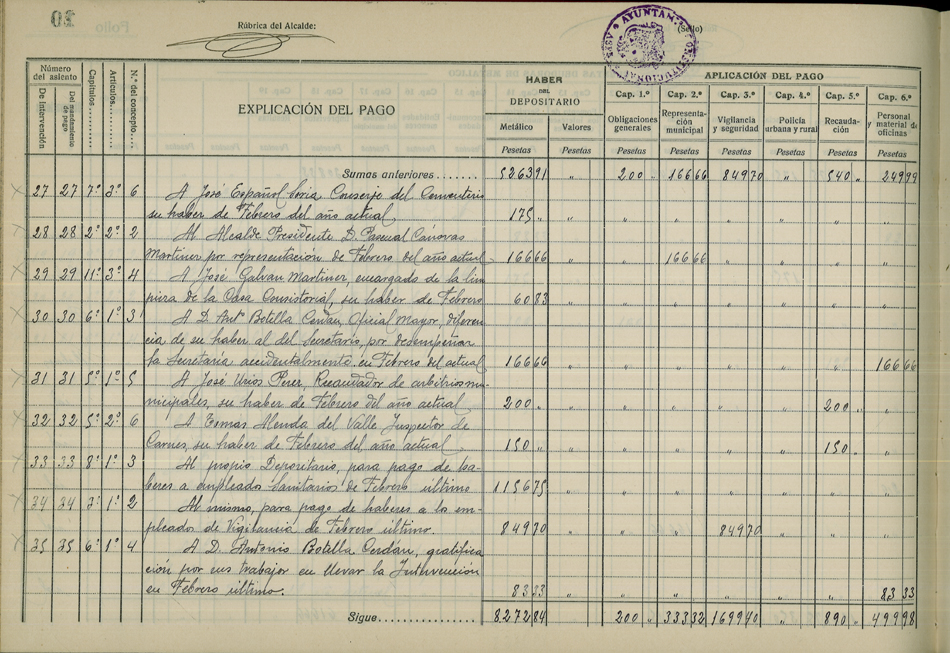 Rúbrica del Alcalde:
(Sello)
AYUNTAM. CONSTITUCIONAL ASPE
Número del asiento
De intervención
Del mandamiento de pago
Capítulos
Artículos
N.º del concepto
EXPLICACIÓN DEL PAGO
HABER DEL DEPOSITARIO
Metálico
Valores
Pesetas
Pesetas
APLICACIÓN DEL PAGO
Cap. 1.º Cap. 2.º Cap. 3.º Cap. 4.º Cap. 5.º Cap. 6.º
Obligaciones generales
Representación municipal
Vigilancia y seguridad
Policía urbana y rural
Recaudación
Personal y material de oficinas
Pesetas Pesetas Pesetas Pesetas Pesetas Pesetas
Sumas anteriores 5263 91 „ 200 „ 166 66 849 70 „ 540 „ 249 99
27 27 7º 3º 6 A José Español Soria Conserje del Cementerio
su haber de Febrero del año actual 175 „
28 28 2º 2º 2 Al Alcalde Presidente D. Pascual Cánovas
Martinez por representación de Febrero del año actual 166 66 „ „ 166 66
29 29 11º 3º 4 A José Galvan Martinez, encargado de la lim
pieza de la Casa Consistorial, su haber de Febrero 60 83
30 30 6º 1º 3 A D. Antº Botella Cerdán Oficial Mayor, diferen
cia de su haber al del Secretario, por desempeñar
la Secretaría accidentalmente en Febrero del actual 166 66 „ „ „ „ „ „ 166 66
31 31 5º 1º 5 A José Urios Perez, Recaudador de arbitrios mu
nicipales, su haber de Febrero del año actual 200 „ „ „ „ „ „ 200 „ „
32 32 5º 2º 6 A Tomas Alenda del Valle Inspector de
Carnes, su haber de Febrero del año actual 150 „ „ „ „ „ „ 150 „ „
33 33 8º 1º 3 Al propio Depositario, para pago de ha-
beres a empleados Sanitarios de Febrero último 1156 75
34 34 3º 1º 2 Al mismo, para pago de haberes a los em-
pleados de Vigilancia de Febrero último. 849 70 „ „ „ 849 70
35 35 6º 1º 4 A D. Antonio Botella Cerdán, gratifica
ción por sus trabajos en llevar la Intervención
en Febrero último. 83 33 „ „ „ „ „ „ 83 33
Sigue 8272 84 „ 200 „ 333 32 1699 40 „ 890 „ 499 98